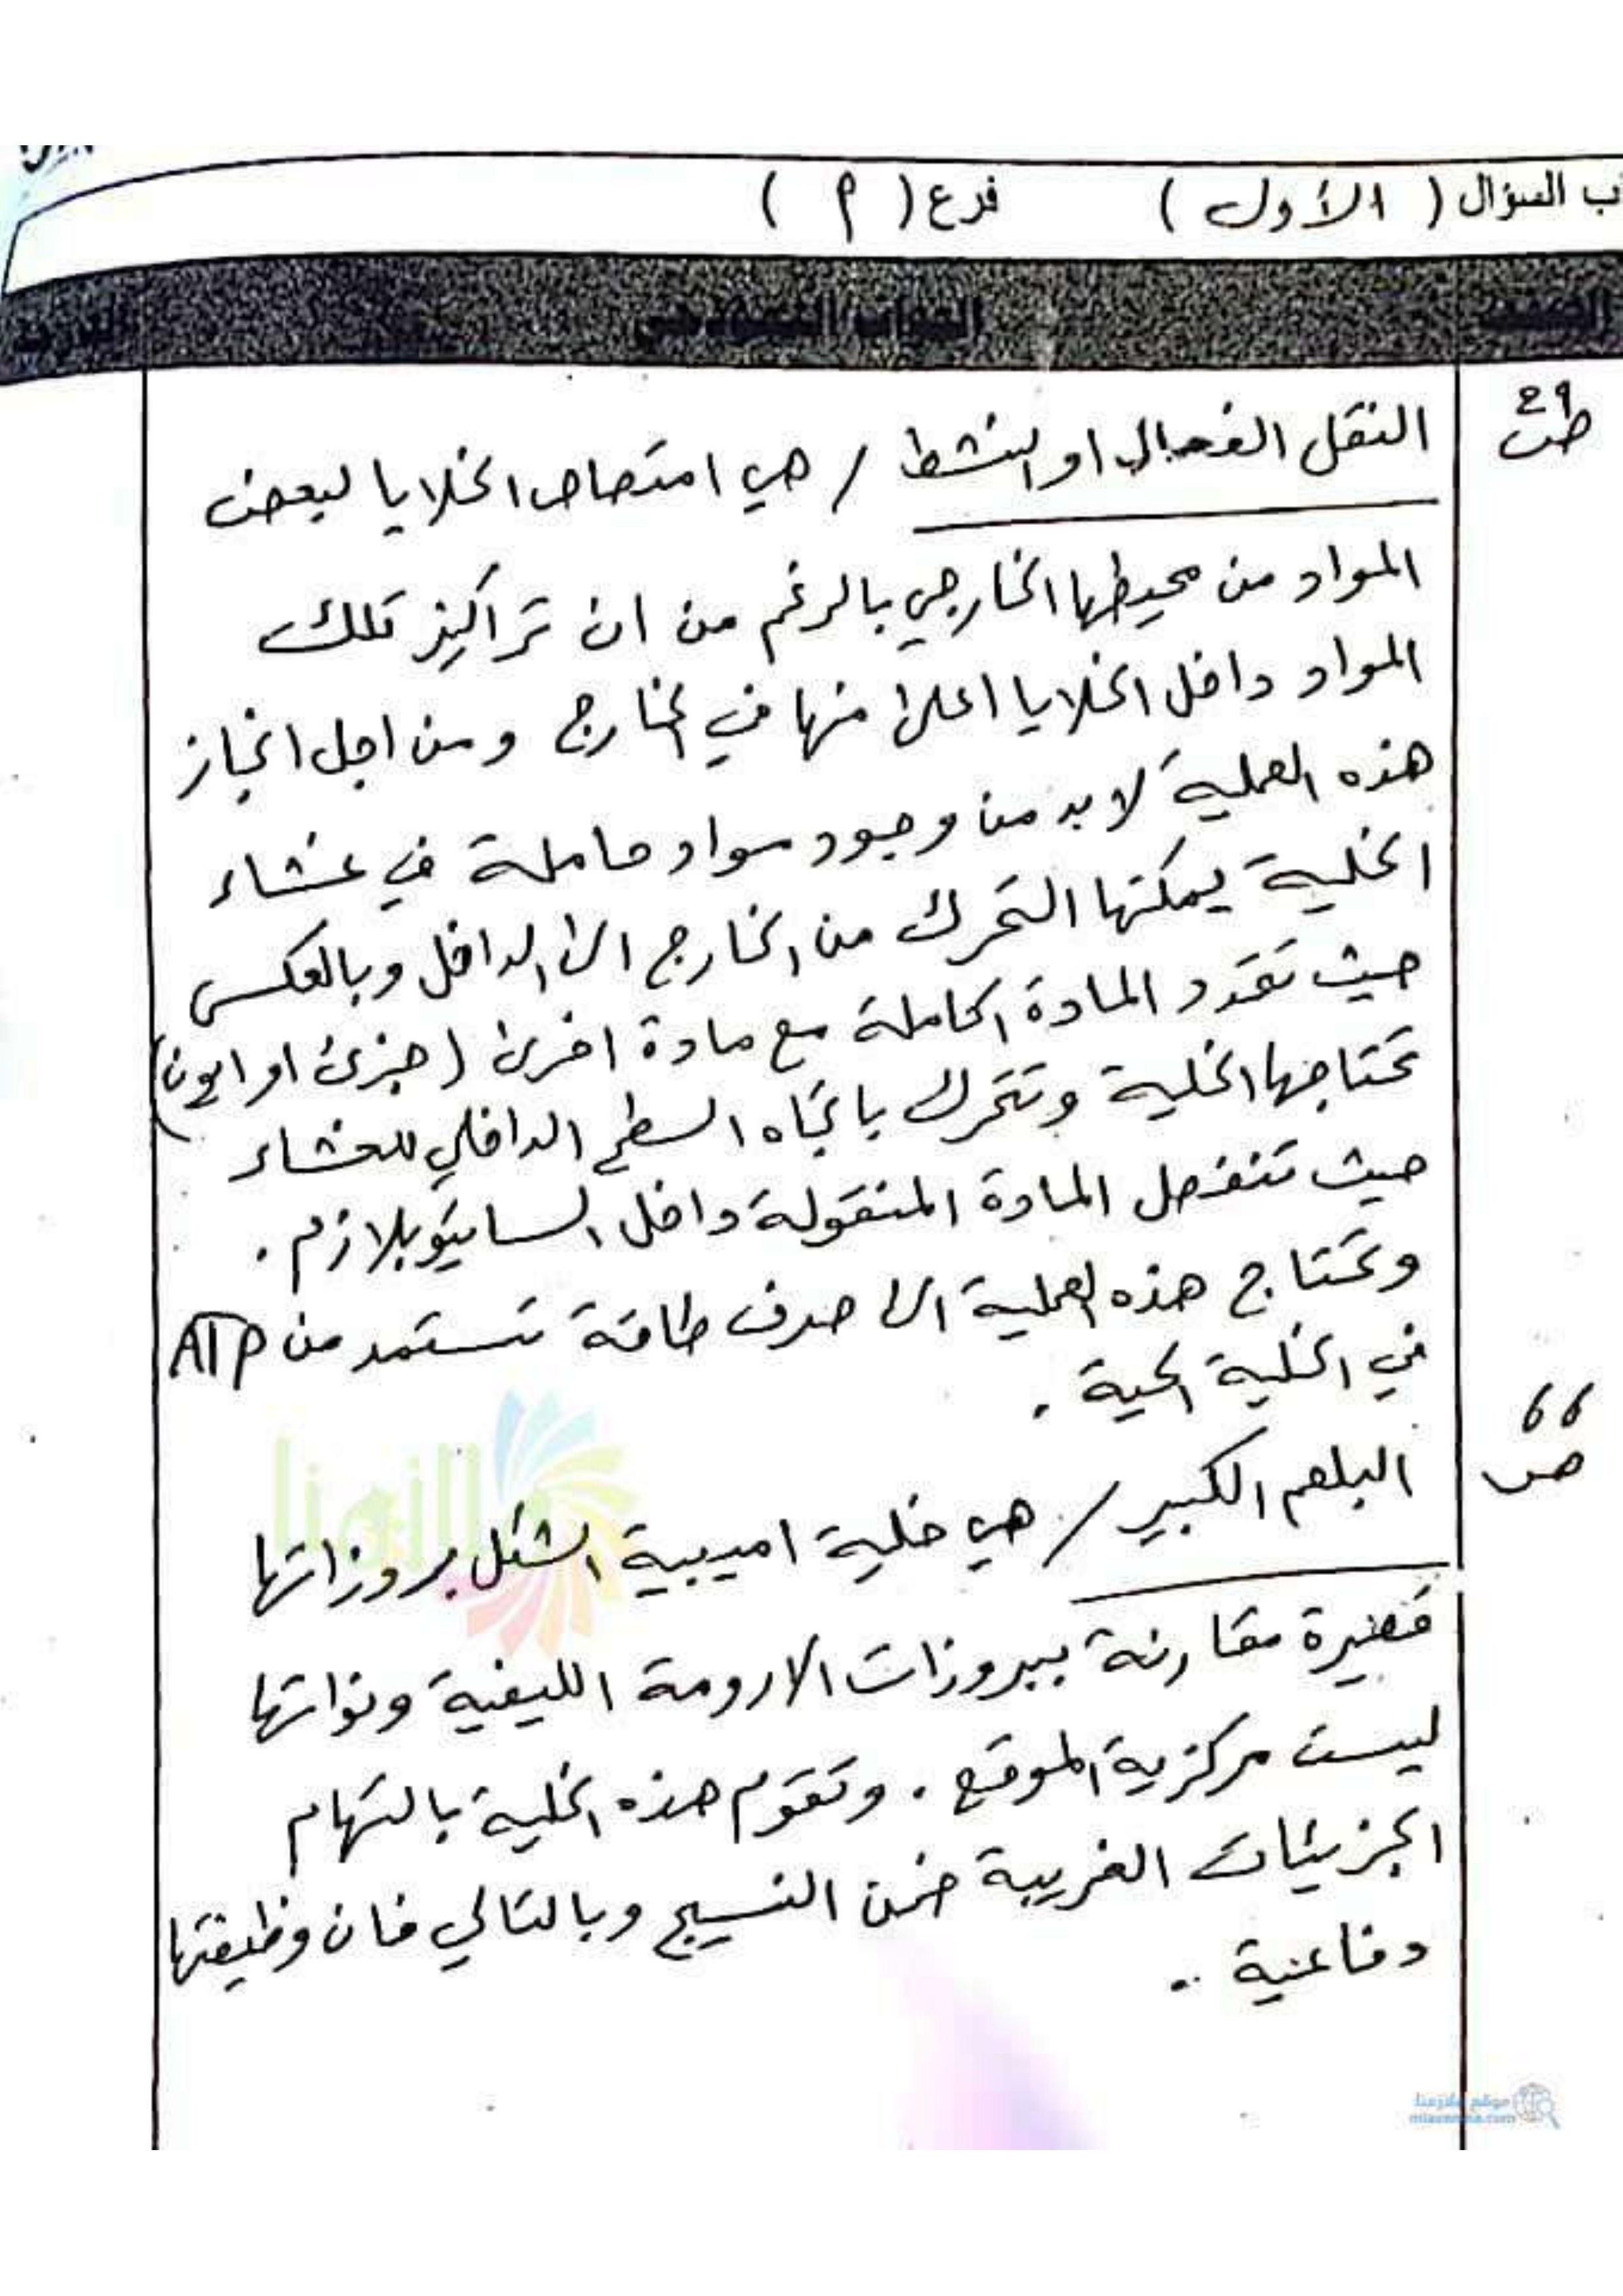 ب السؤال ( الأول ) فرع ( م )
ص 29
النقل الفعال او النشط / هي امتصاص الخلايا لبعض
المواد من محيطها الخارجي بالرغم من ان تراكيز تلك
المواد داخل الخلايا اعلى منها في الخارج ومن اجل انجاز
هذه العملية لا بد من وجود مواد حاملة في غشاء
الخلية يمكنها التحرك من الخارج الى الداخل وبالعكس
حيث تتحد المادة الحاملة مع مادة اخرى (جزئ او ايون)
تحتاجها الخلية وتتحرك باتجاه السطح الداخلي للغشاء
حيث تنفصل المادة المنقولة داخل السايتوبلازم .
وتحتاج هذه العملية الى صرف طاقة تستمد من ATP
في الخلية الحية .
ص 66
البلعم الكبير / هي خلية اميبية الشكل بروزاتها
قصيرة مقارنة ببروزات الارومة الليفية ونواتها
ليست مركزية الموقع . وتقوم هذه الخلية بالتهام
الجزيئات الغريبة ضمن النسيج وبالتالي فان وظيفتها
دفاعية ..
ملازمنا
موقع ملازمنا
mlazemna.com